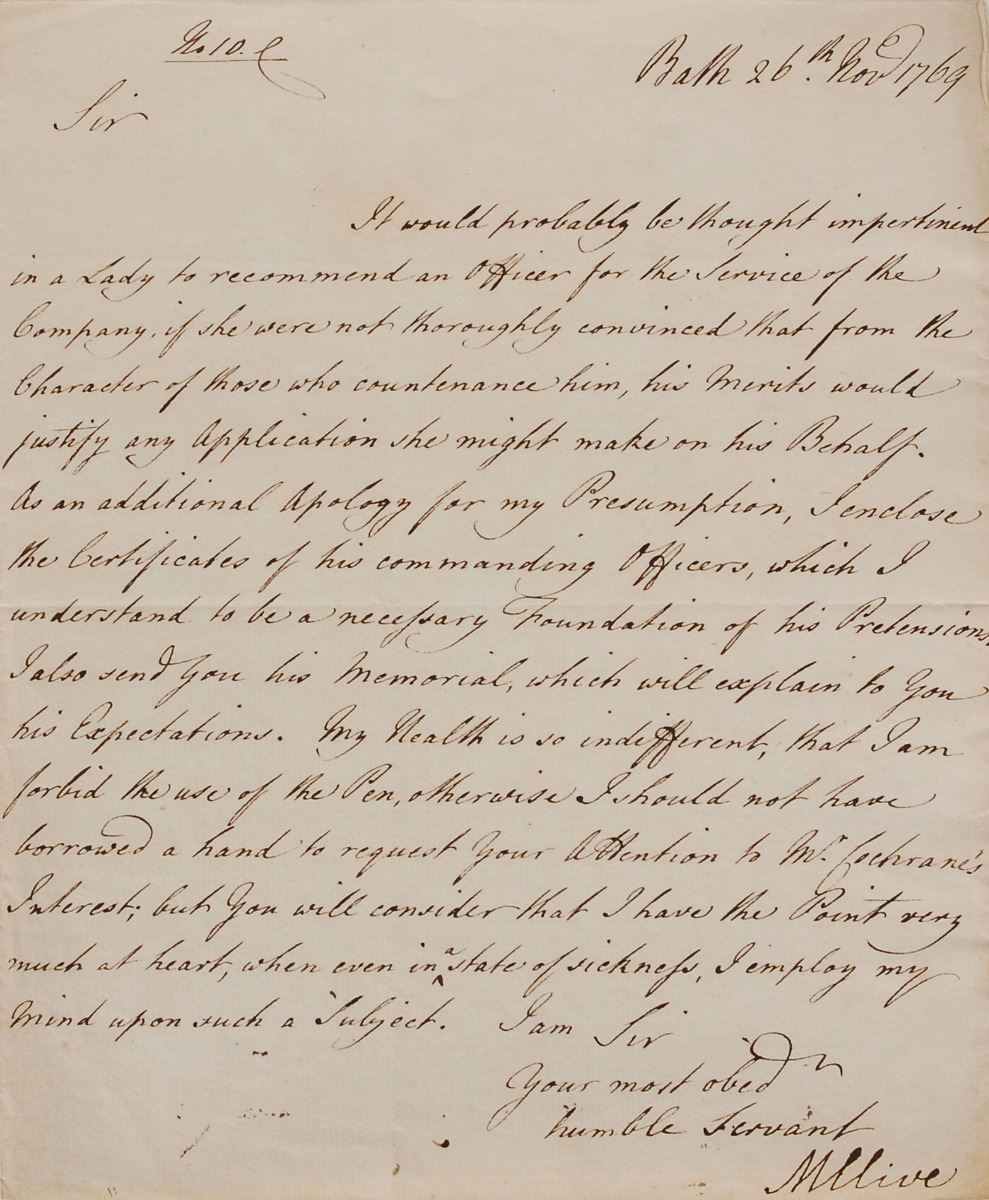 No. 10. C
Bath 26.th Nov.r 1769
Sir
It would probably be thought impertinent
in a Lady to recommend an Officer for the Service of the
Company, if she were not thoroughly convinced that from the
Character of those who countenance him, his Merits would
justify any Application she might make on his Behalf.
As an additional Apology for my Presumption, I enclose
the Certificates of his commanding Officers, which I
understand to be a necessary Foundation of his Pretensions.
I also send You his Memorial, which will explain to You
his Expectations. My Health is so indifferent, that I am
forbid the use of the Pen, otherwise I should not have
borrowed a hand to request Your Attention to Mr. Cochrane's
Interest; but You will consider that I have the Point very
much at heart, when even in a state of sickness, I employ my
Mind upon such a Subject. I am Sir
Your most obed.t
humble Servant
MClive